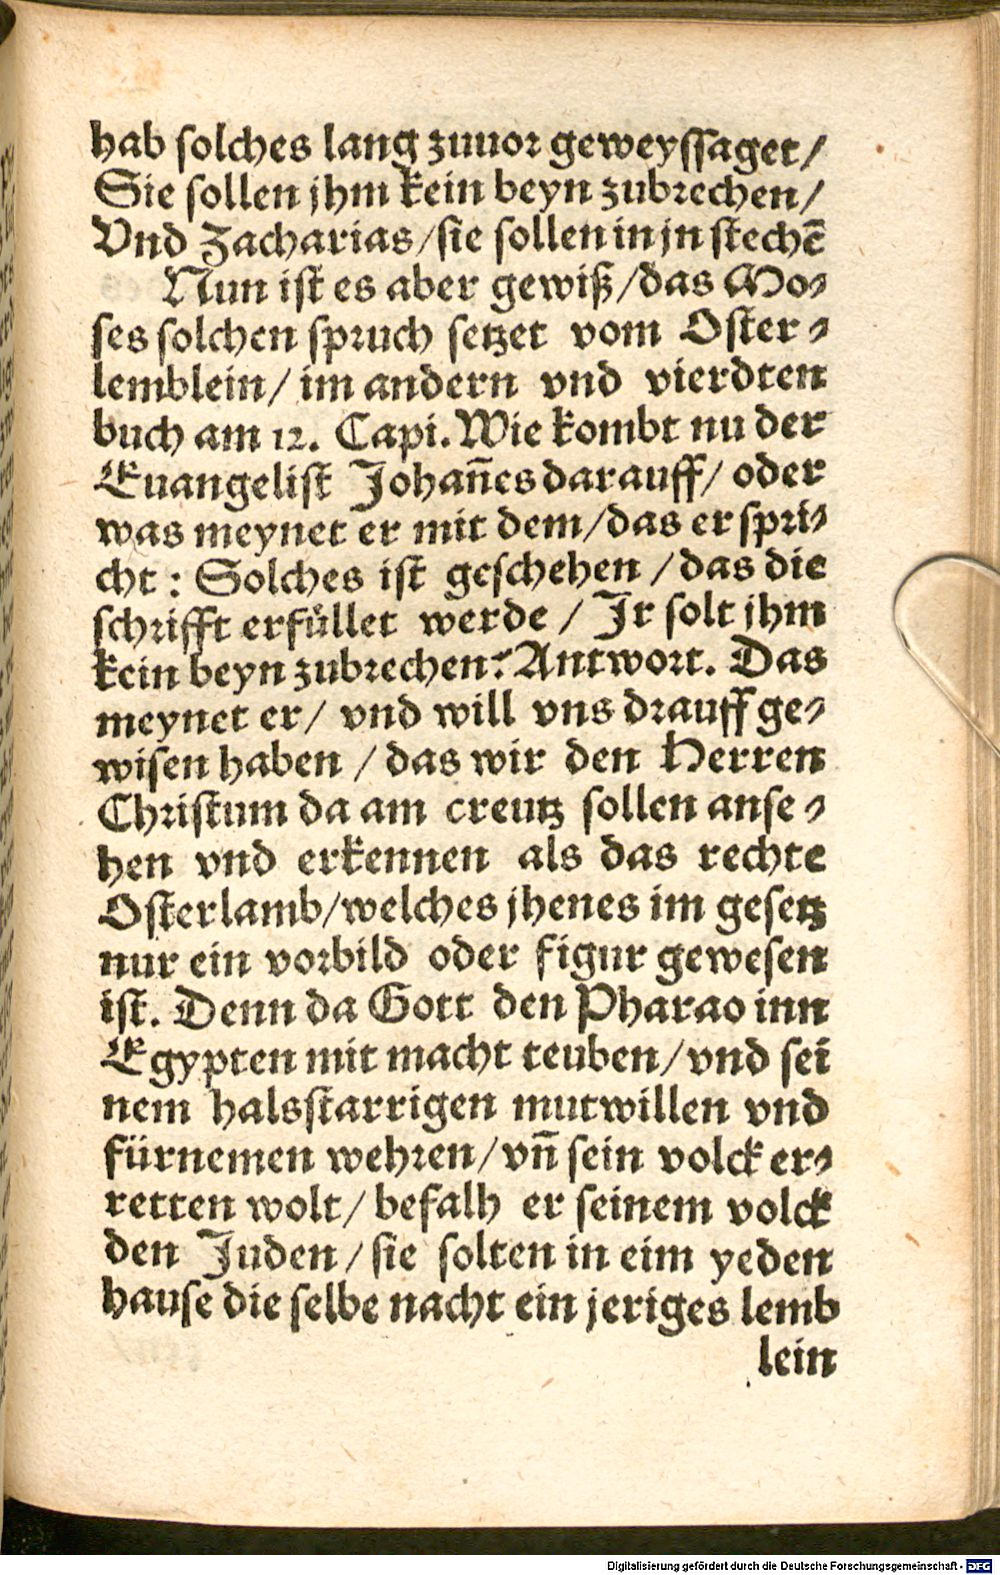 hab solches lang zuuor geweyssaget /
Sie sollen jhm kein beyn zubrechen /
Vnd Zacharias / sie sollen in jn stechē
Nun ist es aber gewiß / das Mo-
ses solchen spruch setzet vom Oster-
lemblein / im andern vnd vierdten
buch am 12. Capi. Wie kombt nu der
Euangelist Johañes darauff / oder
was meynet er mit dem / das er spri-
cht : Solches ist geschehen / das die
schrifft erfüllet werde / Jr solt jhm
kein beyn zubrechen? Antwort. Das
meynet er / vnd will vns drauff ge-
wisen haben / das wir den Herren
Christum da am creutz sollen anse-
hen vnd erkennen als das rechte
Osterlamb / welches jhenes im gesetz
nur ein vorbild oder figur gewesen
ist. Denn da Gott den Pharao inn
Egypten mit macht teuben / vnd sei
nem halsstarrigen mutwillen vnd
fürnemen wehren / vñ sein volck er-
retten wolt / befalh er seinem volck
den Juden / sie solten in eim yeden
hause die selbe nacht ein jeriges lemb
lein
Digitalisierung gefördert durch die Deutsche Forschungsgemeinschaft - DFG